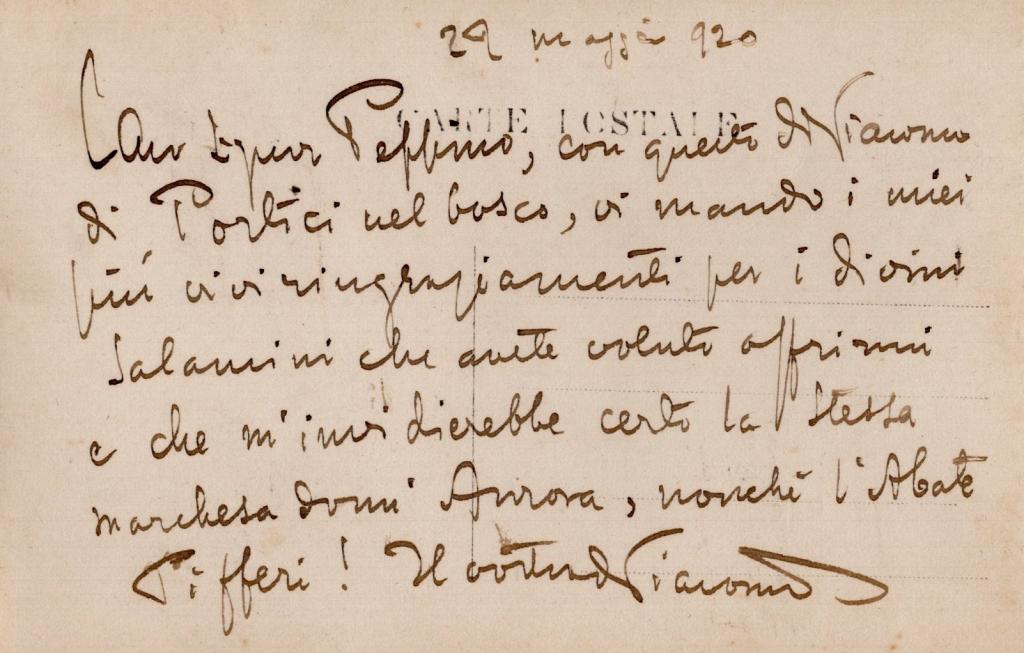 29 maggio 920
CARTE POSTALE
Caro Signor Peppino, con questo Di Giacomo
di Portici nel bosco, vi mando i miei
più vivi ringraziamenti per i divini
salamini che avete voluto offrirmi
e che m'invidierebbe certo la stessa
marchesa donn' Aurora, nonché l'Abate
Pifferi! Il vostro Di Giacomo